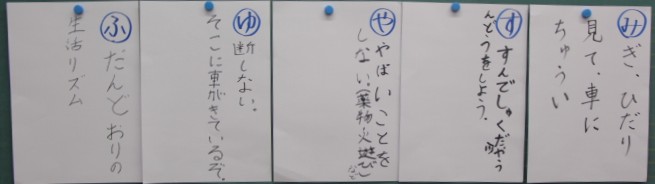 みぎ、ひだり
見て、車に
ちゅうい
すすんでしゅくだいやう
んどうをしよう。
ややばいことを
しない。(薬物火遊びなど)
ゆ断しない。
そこに車がきているぞ。
ふだんどおりの
生活リズム